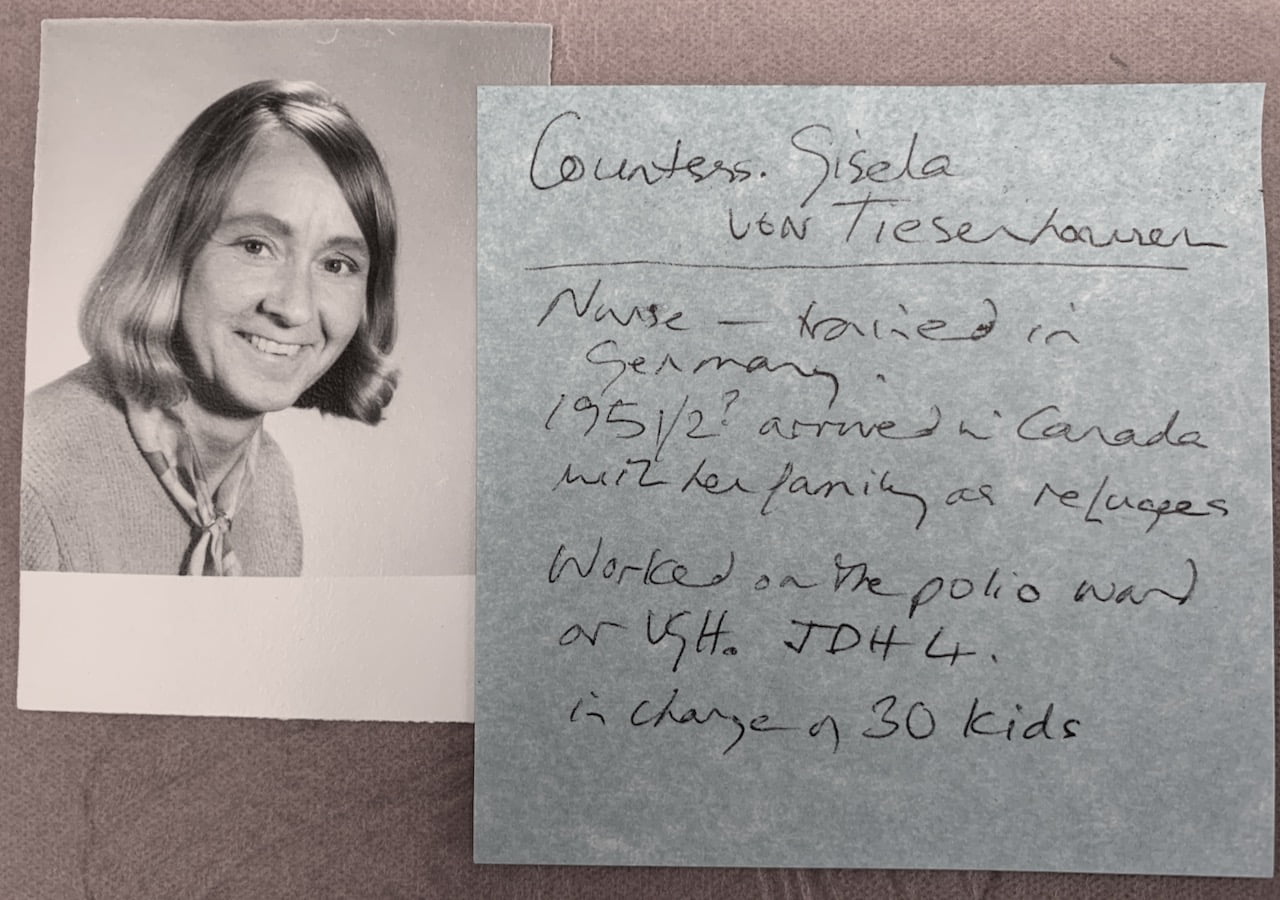 Countess. Gisela
von Tiesenhausen
Nurse — trained in
Germany.
1951/2? arrived in Canada
with her family as refugees
Worked on the polio ward
or VGH. JDH 4.
in charge of 30 kids